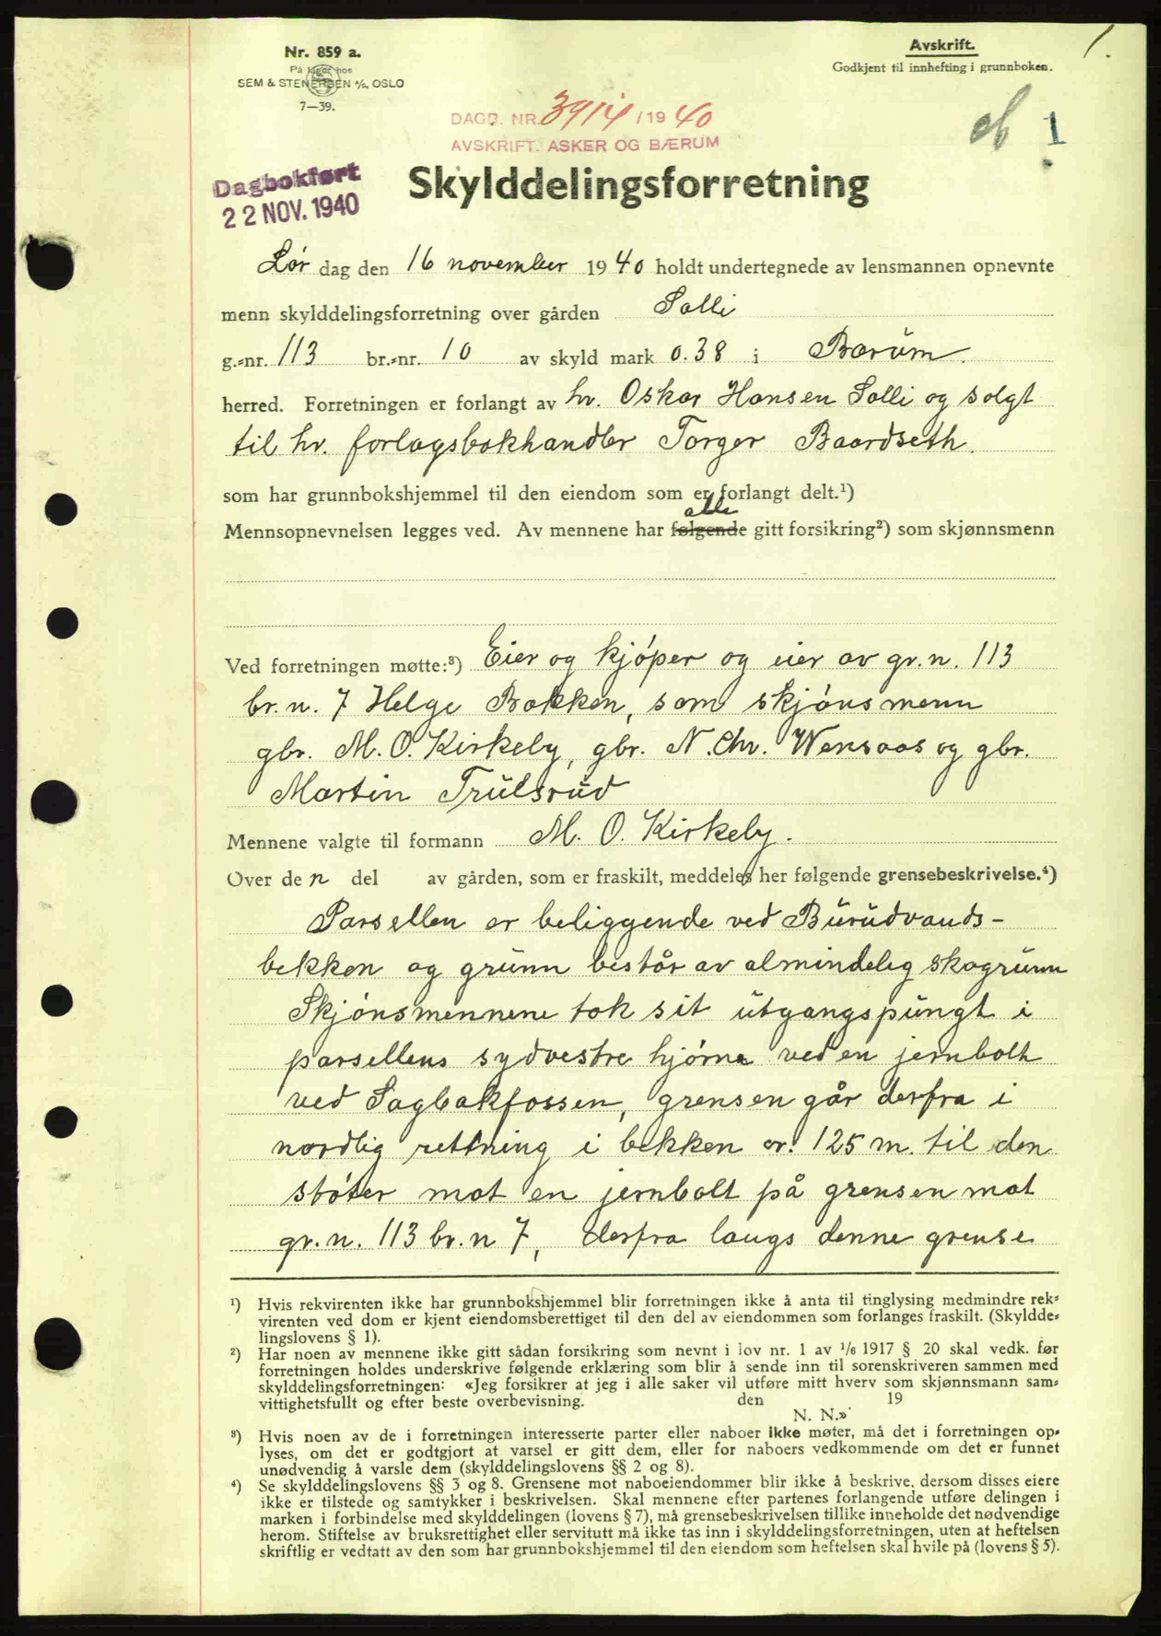 Nr. 859 a.
På lager hos
SEM & STENERSEN A/S, OSLO
7—39.
Avskrift.
Godkjent til innhefting i grunnboken.
1.
DAGB. NR. 3914 / 19 40
AVSKRIFT. ASKER OG BÆRUM
1
Dagbokført
22 NOV. 1940
Skylddelingsforretning
Lør dag den 16 november 1940 holdt undertegnede av lensmannen opnevnte
menn skylddelingsforretning over gården Solli
g.-nr. 113 br.-nr. 10 av skyld mark 0.38 i Bærum.
herred. Forretningen er forlangt av hr. Oskar Hansen Solli og solgt
til hr. forlagsbokhandler Torger Baardseth.
som har grunnbokshjemmel til den eiendom som er forlangt delt.¹)
alle
Mennsopnevnelsen legges ved. Av mennene har følgende gitt forsikring²) som skjønnsmenn
Ved forretningen møtte:³) Eier og kjøper og eier av gr.n. 113
br.n. 7 Helge Bakken, som skjønsmenn
gbr. M. O. Kirkeby, gbr. N. Chr. Wensaas og gbr.
Martin Trulsrud
Mennene valgte til formann M. O. Kirkeby.
Over den del av gården, som er fraskilt, meddeles her følgende grensebeskrivelse.⁴)
Parsellen er beliggende ved Burudvands-
bekken og grunn består av almindelig skogrunn
Skjønsmennene tok sit utgangspungt i
parsellens sydvestre hjørne ved en jernbolt
ved Sagbakfossen, grensen går derfra i
nordlig rettning i bekken cr. 125 m. til den
støter mot en jernbolt på grensen mot
gr.n. 113 br.n 7, derfra langs denne grense
¹) Hvis rekvirenten ikke har grunnbokshjemmel blir forretningen ikke å anta til tinglysing medmindre rek-
virenten ved dom er kjent eiendomsberettiget til den del av eiendommen som forlanges fraskilt. (Skyldde-
lingslovens § 1).
²) Har noen av mennene ikke gitt sådan forsikring som nevnt i lov nr. 1 av 1/6 1917 § 20 skal vedk. før
forretningen holdes underskrive følgende erklæring som blir å sende inn til sorenskriveren sammen med
skylddelingsforretningen: «Jeg forsikrer at jeg i alle saker vil utføre mitt hverv som skjønnsmann sam-
vittighetsfullt og efter beste overbevisning. den 19
N. N.»
³) Hvis noen av de i forretningen interesserte parter eller naboer ikke møter, må det i forretningen op-
lyses, om det er godtgjort at varsel er gitt dem, eller for naboers vedkommende om det er funnet
unødvendig å varsle dem (skylddelingslovens §§ 2 og 8).
⁴) Se skylddelingslovens §§ 3 og 8. Grensene mot naboeiendommer blir ikke å beskrive, dersom disses eiere
ikke er tilstede og samtykker i beskrivelsen. Skal mennene efter partenes forlangende utføre delingen i
marken i forbindelse med skylddelingen (lovens § 7), må grensebeskrivelsen tillike inneholde det nødvendige
herom. Stiftelse av bruksrettighet eller servitutt må ikke tas inn i skylddelingsforretningen, uten at heftelsen
skriftlig er vedtatt av den som har grunnbokshjemmel til den eiendom som heftelsen skal hvile på (lovens § 5).